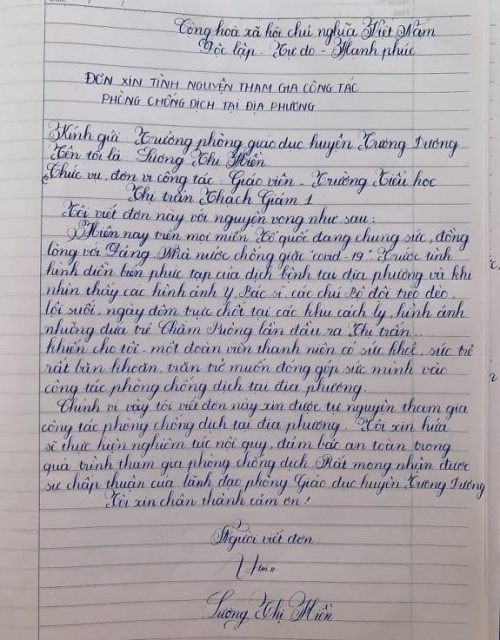 Cộng hoà xã hội chủ nghĩa Việt Nam
Độc lập - Tự do - Hạnh phúc
ĐƠN XIN TÌNH NGUYỆN THAM GIA CÔNG TÁC
PHÒNG CHỐNG DỊCH TẠI ĐỊA PHƯƠNG
Kính gửi: Trưởng phòng giáo dục huyện Tương Dương
Tên tôi là: Lương Thị Hiền
Chức vụ, đơn vị công tác: Giáo viên - Trường Tiểu học
Thị trấn Thạch Giám 1
Tôi viết đơn này với nguyện vọng như sau:
Hiện nay trên mọi miền Tổ quốc đang chung sức, đồng
lòng với Đảng, Nhà nước chống giặc "covid-19". Trước tình
hình diễn biến phức tạp của dịch bệnh tại địa phương và khi
nhìn thấy các hình ảnh y, Bác sĩ, các chú Bộ đội trèo đèo,
lội suối, ngày đêm trực chốt tại các khu cách ly, hình ảnh
những đứa trẻ lần đầu ra Thị trấn...
khiến cho tôi - một đoàn viên thanh niên có sức khoẻ, sức trẻ
rất băn khoăn, trăn trở muốn đóng góp sức mình vào
công tác phòng chống dịch tại địa phương.
Chính vì vậy tôi viết đơn này xin được tự nguyện tham gia
công tác phòng chống dịch tại địa phương. Tôi xin hứa
sẽ thực hiện nghiêm túc nội quy, đảm bảo an toàn trong
quá trình tham gia phòng chống dịch. Rất mong nhận được
sự chấp thuận của lãnh đạo phòng Giáo dục huyện Tương Dương
Tôi xin chân thành cảm ơn!
Người viết đơn
Lương Thị Hiền